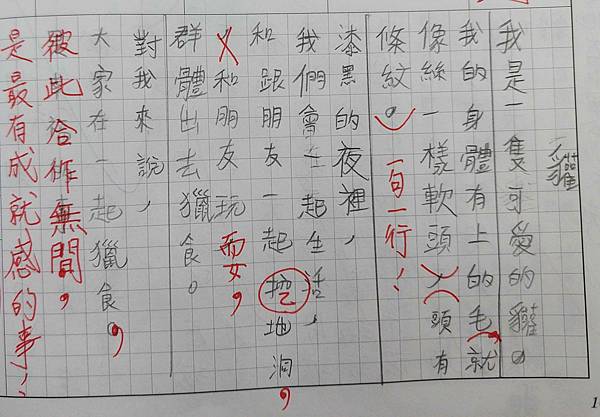 獾
我是一隻可愛的獾。
我的身體有上的毛就
像絲一樣軟頭,頭有
條紋。一句一行!
漆黑的夜裡,
我們會一起生活,
和跟朋友一起挖地洞,
和朋友玩耍,
群體出去獵食。
對我來說,
大家在一起獵食。,
彼此合作無間,
是最有成就感的事!
1